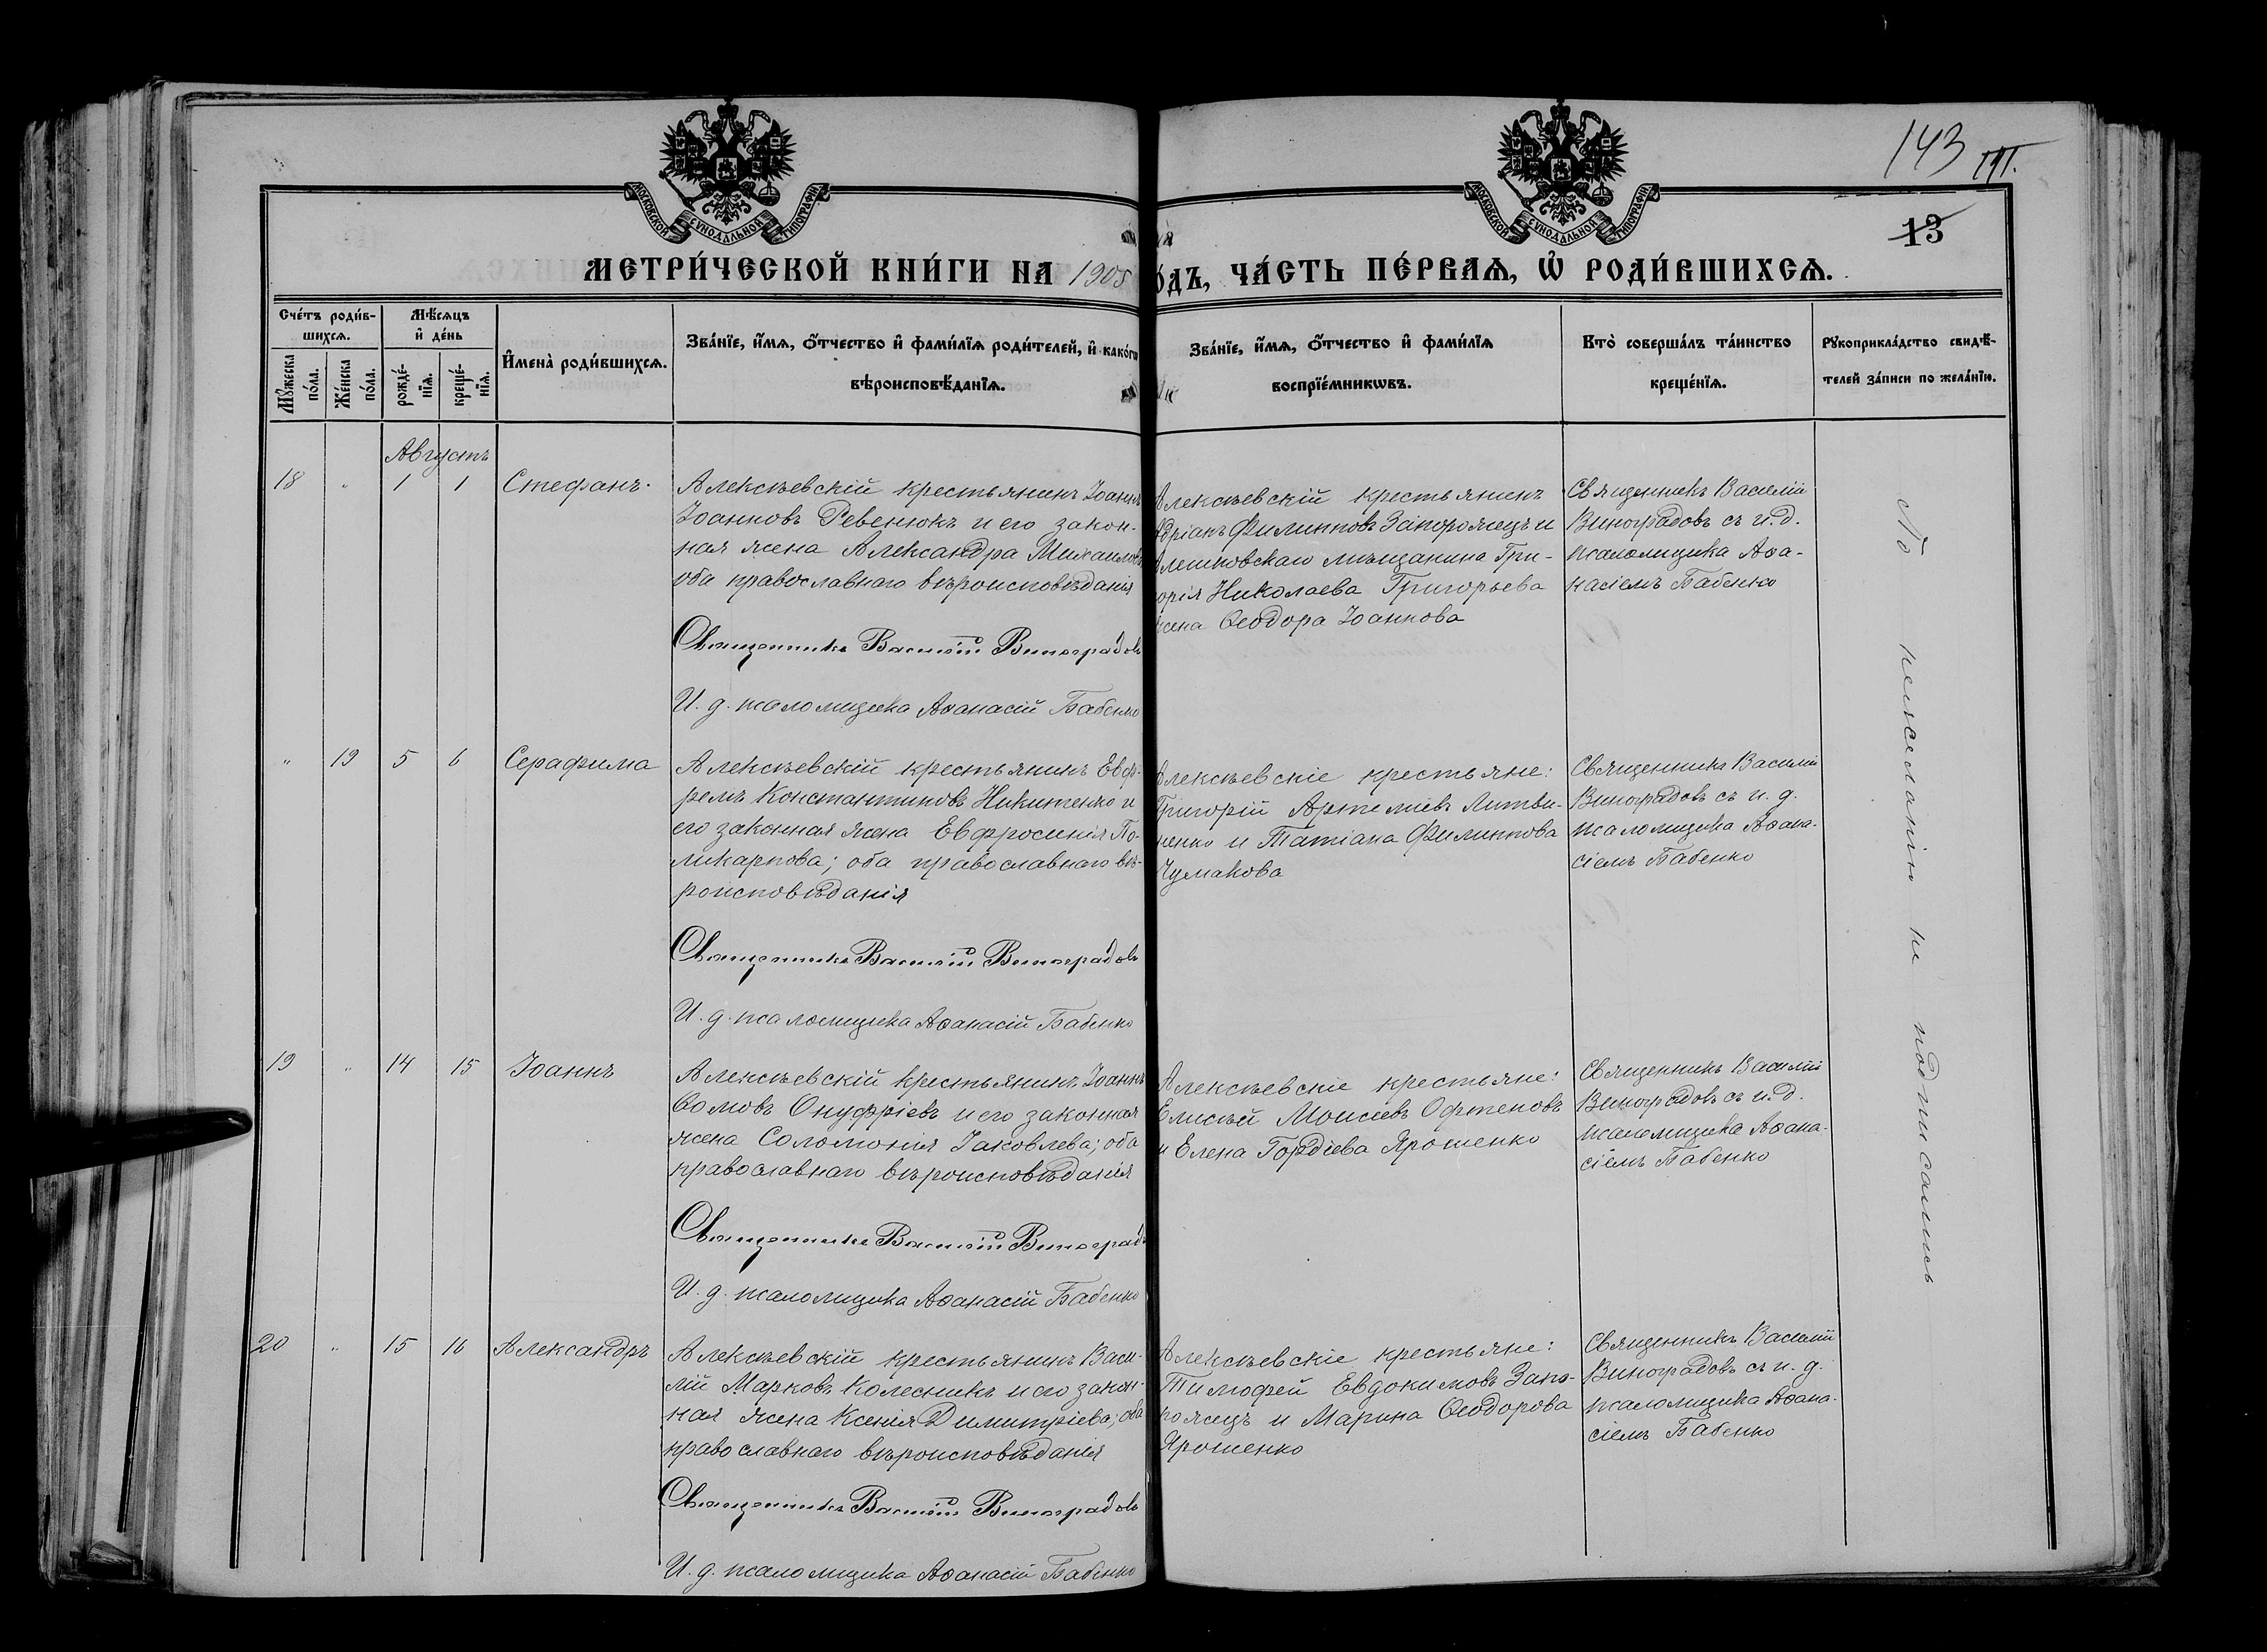 143
13
МОСКОВСКОЙ СѴНОДАЛЬНОЙ ТИПОГРАФІИ
МОСКОВСКОЙ СѴНОДАЛЬНОЙ ТИПОГРАФІИ
МЕТРИ́ЧЕСКОЙ КНИ́ГИ НА 1905
О́ДЪ, ЧА́СТЬ ПЕ́РВАѦ, Ѡ҆ РОДИ́ВШИХСѦ.
Сче́тъ роди́в-
шихсѧ.
Мꙋ́жеска
по́ла.
Же́нска
по́ла.
Мѣ́сѧцъ
и҆ де́нь
рожде́-
нїѧ.
креще́-
нїѧ.
И҆мена̀ роди́вшихсѧ.
Зва́нїе, и҆́мѧ, ѻ҆́тчество и҆ фами́лїѧ роди́телей, и҆ како́гѡ
вѣроисповѣ́данїѧ.
Зва́нїе, и҆́мѧ, ѻ҆́тчество и҆ фами́лїѧ
воспрїе́мникѡвъ.
Кто̀ соверша́лъ та́инство
креще́нїѧ.
Рꙋкоприкла́дство свидѣ́-
телей за́писи по жела́нїю.
Августъ
18 " 1 1 Стефанъ.
Алексѣевскій крестьянинъ Іоаннъ
Іоанновъ Ревенюкъ и его закон-
ная жена Александра Михаилова
оба православнаго вѣроисповѣданія
Священникъ Василій Виноградовъ
И. д. псаломщика Аѳанасій Бабенко
Алексѣевскій крестьянинъ
Адріанъ Филипповъ Запорожецъ и
Алешковскаго мѣщанина Гри-
горія Николаева Григорьева
жена Ѳеодора Іоаннова
Священникъ Василій
Виноградовъ съ и. д.
псаломщика Аѳа-
насіемъ Бабенко
" 19 5 6 Серафима
Алексѣевскій крестьянинъ Евф-
ремъ Константиновъ Никитенко и
его законная жена Евфросинія По-
ликарпова; оба православнаго вѣ-
роисповѣданія
Священникъ Василій Виноградовъ
И. д. псаломщика Аѳанасій Бабенко
Алексѣевскіе крестьяне:
Григорій Артеміевъ Литви-
ненко и Татіана Филиппова
Чумакова
Священникъ Василій
Виноградовъ съ и. д.
псаломщика Аѳана-
сіемъ Бабенко
19 " 14 15 Іоаннъ
Алексѣевскій крестьянинъ Іоаннъ
Ѳомовъ Онуфріевъ и его законная
жена Соломонія Іаковлева; оба
православнаго вѣроисповѣданія
Священникъ Василій Виноградовъ
И. д. псаломщика Аѳанасій Бабенко
Алексѣевскіе крестьяне:
Елисѣй Моисіевъ Офтеновъ
и Елена Гордіева Ярошенко
Священникъ Василій
Виноградовъ съ и. д.
псаломщика Аѳана-
сіемъ Бабенко
20 " 15 16 Александръ
Алексѣевскій крестьянинъ Васи-
лій Марковъ Колесникъ и его закон-
ная жена Ксенія Димитріева; оба
православнаго вѣроисповѣданія
Священникъ Василій Виноградовъ
И. д. псаломщика Аѳанасій Бабенко
Алексѣевскіе крестьяне:
Тимофей Евдокимовъ Запо-
рожецъ и Марина Ѳеодорова
Ярошенко
Священникъ Василій
Виноградовъ съ и. д.
псаломщика Аѳана-
сіемъ Бабенко
По нежеланію не подписались